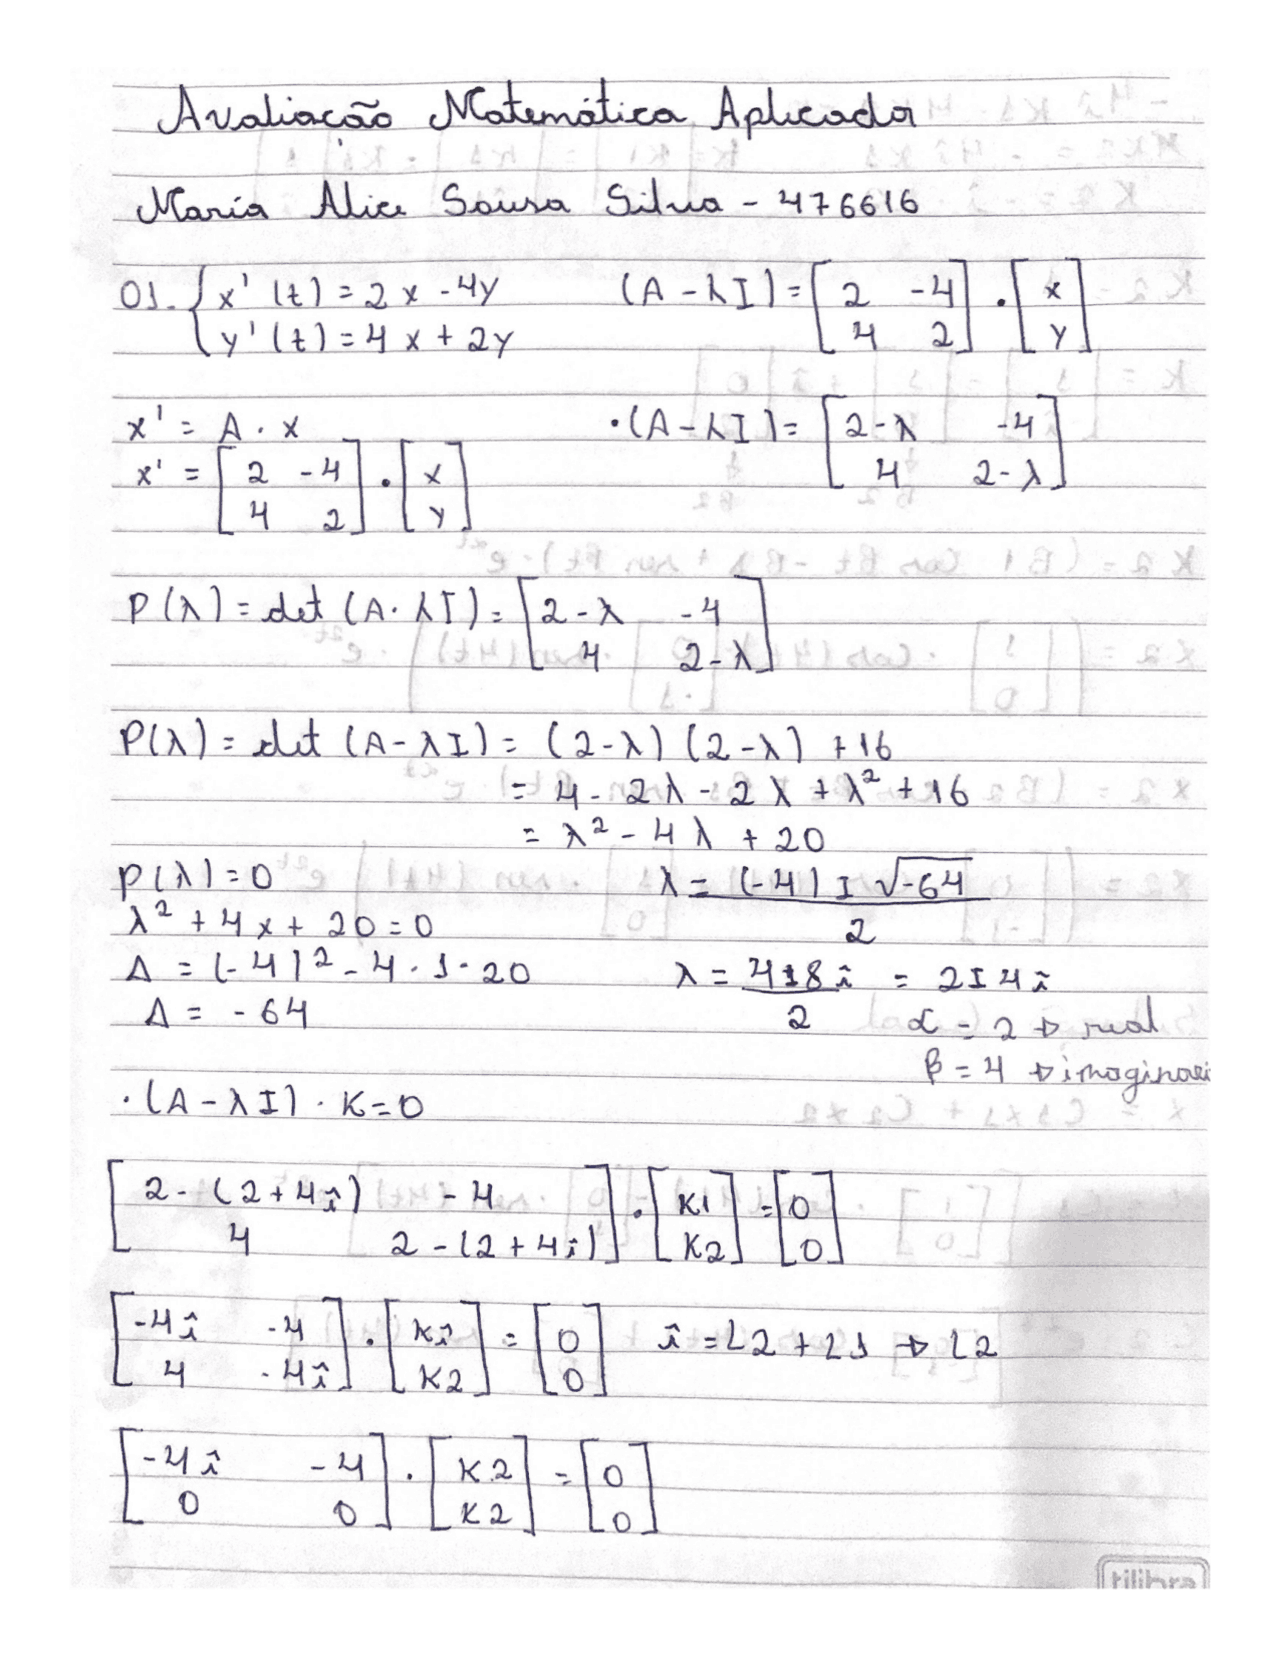 Avaliação Matemática Aplicada
Maria Alice Sousa Silva - 476616
01. { x' (t) = 2x - 4y      (A - λI) = [2 -4; 4 2] · [x; y]
y' (t) = 4x + 2y
x' = A · x      · (A - λI) = [2-λ -4; 4 2-λ]
x' = [2 -4; 4 2] · [x; y]
P(λ) = det (A · λI) = [2-λ -4; 4 2-λ]
P(λ) = det (A - λI) = (2-λ) (2-λ) + 16
= 4 - 2λ - 2λ + λ² + 16
= λ² - 4λ + 20
P(λ) = 0      λ = (-4) ± √-64 / 2
λ² + 4x + 20 = 0
Δ = (-4)² - 4 · 1 · 20      λ = 4 ± 8i / 2 = 2 ± 4i
Δ = - 64      α = 2 → real
β = 4 → imaginari
· (A - λI) · K = 0
[2 - (2+4i) -4; 4 2 - (2+4i)] · [K1; K2] = [0; 0]
[-4i -4; 4 -4i] · [Ki; K2] = [0; 0]      i = L2 + L1 → L2
[-4i -4; 0 0] · [K2; K2] = [0; 0]
tilibra